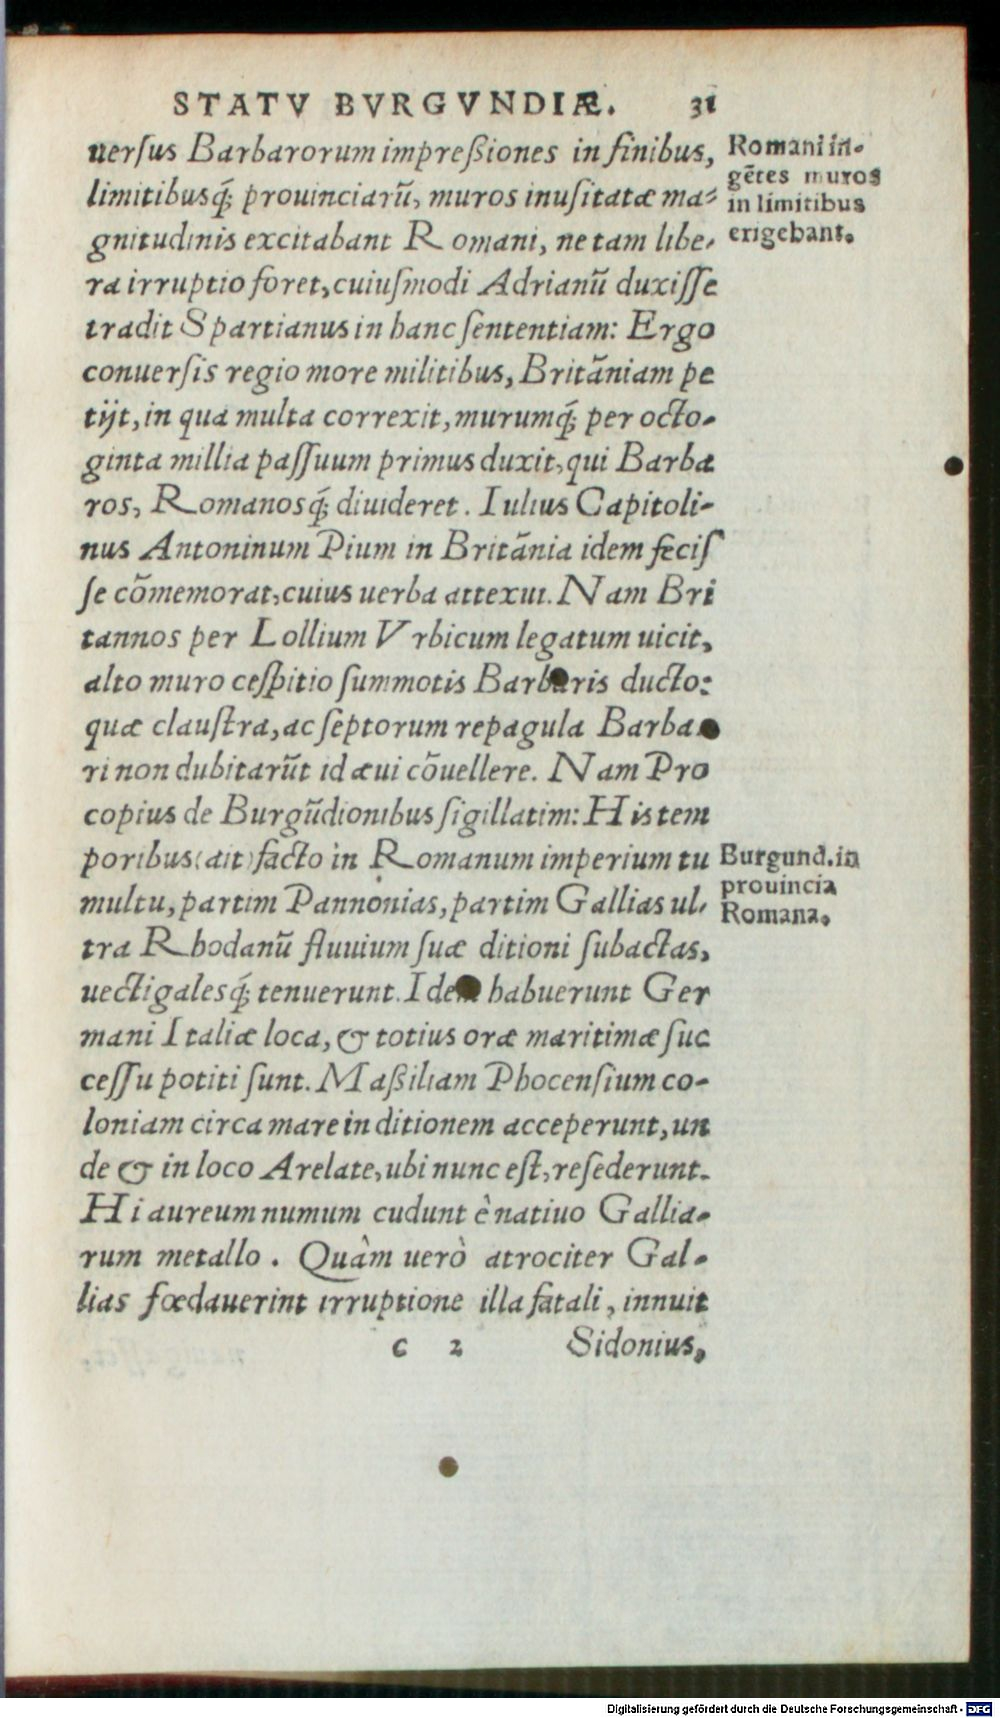 STATV BVRGVNDIÆ. 31
uerſus Barbarorum impreßiones in finibus,
limitibusq́; prouinciarũ, muros inuſitatæ ma-
gnitudinis excitabant Romani, ne tam libe-
ra irruptio foret, cuiuſmodi Adrianũ duxiſſe
tradit Spartianus in hanc ſententiam: Ergo
conuerſis regio more militibus, Britãniam pe
tijt, in qua multa correxit, murumq́; per octo-
ginta millia paſſuum primus duxit, qui Barba
ros, Romanosq́; diuideret. Iulius Capitoli-
nus Antoninum Pium in Britãnia idem feciſ
ſe cõmemorat, cuius uerba attexui. Nam Bri
tannos per Lollium Vrbicum legatum uicit,
alto muro ceſpitio ſummotis Barbaris ducto:
quæ clauſtra, ac ſeptorum repagula Barba
ri non dubitarũt id æui cõuellere. Nam Pro
copius de Burgũdionibus ſigillatim: His tem
poribus (ait) facto in Romanum imperium tu
multu, partim Pannonias, partim Gallias ul-
tra Rhodanũ fluuium ſuæ ditioni ſubactas,
uectigalesq́; tenuerunt. Idem habuerunt Ger
mani Italiæ loca, & totius oræ maritimæ ſuc
ceſſu potiti ſunt. Maßiliam Phocenſium co-
loniam circa mare in ditionem acceperunt, un
de & in loco Arelate, ubi nunc eſt, reſederunt.
Hi aureum numum cudunt è natiuo Gallia-
rum metallo. Quàm uerò atrociter Gal-
lias fœdauerint irruptione illa fatali, innuit
c 2 Sidonius,
Romani in-
gẽtes muros
in limitibus
erigebant.
Burgund. in
prouincia
Romana.
Digitalisierung gefördert durch die Deutsche Forschungsgemeinschaft - DFG